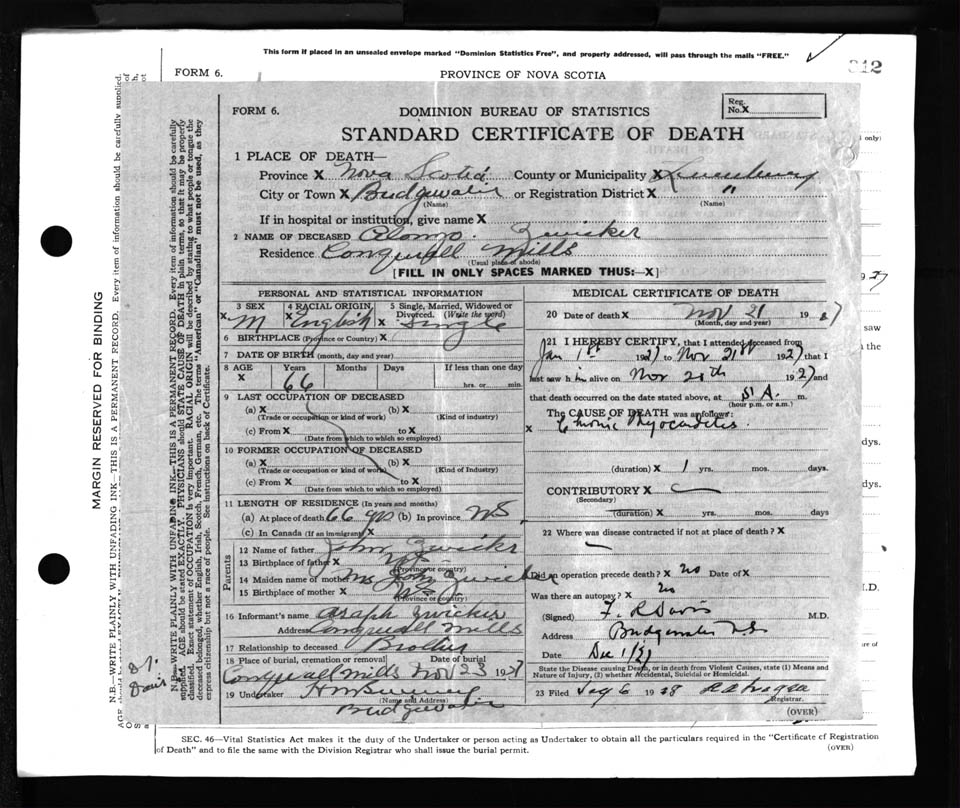 This form if placed in an unsealed envelope marked "Dominion Statistics Free", and properly addressed, will pass through the mails "FREE."
FORM 6.
PROVINCE OF NOVA SCOTIA
FORM 6.
DOMINION BUREAU OF STATISTICS
Reg. No. X
STANDARD CERTIFICATE OF DEATH
1 PLACE OF DEATH—
Province X Nova Scotia County or Municipality X Lunenburg
City or Town X Bridgewater or Registration District X "
(Name) (Name)
If in hospital or institution, give name X
2 NAME OF DECEASED Alonzo Zwicker
Residence Conquerall Mills
(Usual place of abode)
[FILL IN ONLY SPACES MARKED THUS:—X]
PERSONAL AND STATISTICAL INFORMATION
3 SEX 4 RACIAL ORIGIN 5 Single, Married, Widowed or Divorced. (Write the word)
X M X English X Single
6 BIRTHPLACE (Province or Country) X
7 DATE OF BIRTH (month, day and year)
8 AGE X Years Months Days If less than one day
66 hrs. or min.
9 LAST OCCUPATION OF DECEASED
(a) X (b) X
(Trade or occupation or kind of work) (Kind of industry)
(c) From X to X
(Date from which to which so employed)
10 FORMER OCCUPATION OF DECEASED
(a) X (b) X
(Trade or occupation or kind of work) (Kind of industry)
(c) From X to X
(Date from which to which so employed)
11 LENGTH OF RESIDENCE (In years and months)
(a) At place of death 66 yrs (b) In province NS
(c) In Canada (if an immigrant) X
Parents
12 Name of father John Zwicker
13 Birthplace of father X NS
(Province or country)
14 Maiden name of mother Mrs John Zwicker
15 Birthplace of mother X NS
(Province or country)
16 Informant's name Asaph Zwicker
Address Conquerall Mills
17 Relationship to deceased Brother
18 Place of burial, cremation or removal Date of burial
Conquerall Mills Nov 23 1927
19 Undertaker
(Name and Address)
Bridgewater
MEDICAL CERTIFICATE OF DEATH
20 Date of death X Nov 21 1927
(Month, day and year)
21 I HEREBY CERTIFY, that I attended deceased from
Jan 1st 1927 to Nov 21st 1927 that I
last saw him alive on Nov 20th 1927 and
that death occurred on the date stated above, at A. m.
(hour p.m. or a.m.)
The CAUSE OF DEATH was as follows:
X Chronic Myocarditis.
(duration) X 1 yrs. mos. days.
CONTRIBUTORY X
(Secondary)
(duration) X yrs. mos. days
22 Where was disease contracted if not at place of death? X
Did an operation precede death? X No Date of X
Was there an autopsy? X No
(Signed) F. R Davis M.D.
Address Bridgewater N.S.
Date Dec 1/27
State the Disease causing Death, or in death from Violent Causes, state (1) Means and Nature of Injury, (2) whether Accidental, Suicidal or Homicidal.
23 Filed 6 1928
Registrar.
(OVER)
MARGIN RESERVED FOR BINDING
N.B.—WRITE PLAINLY WITH UNFADING INK—THIS IS A PERMANENT RECORD. Every item of information should be carefully supplied.
N.B.—WRITE PLAINLY WITH UNFADING INK—THIS IS A PERMANENT RECORD. Every item of information should be carefully
supplied. AGE should be stated EXACTLY. PHYSICIANS should STATE CAUSE OF DEATH in plain terms, so that it may be properly
classified. Exact statement of OCCUPATION is very important. RACIAL ORIGIN will be described by stating to what people or tongue the
deceased belonged, whether English, Irish, Scotch, French, German, etc. The terms "American" or "Canadian" must not be used, as they
express citizenship but not a race of people. See instructions on back of Certificate.
Dr. Davis
only)
saw
the
dys.
dys.
M.D.
are or
SEC. 46—Vital Statistics Act makes it the duty of the Undertaker or person acting as Undertaker to obtain all the particulars required in the "Certificate of Registration
of Death" and to file the same with the Division Registrar who shall issue the burial permit.
(OVER)